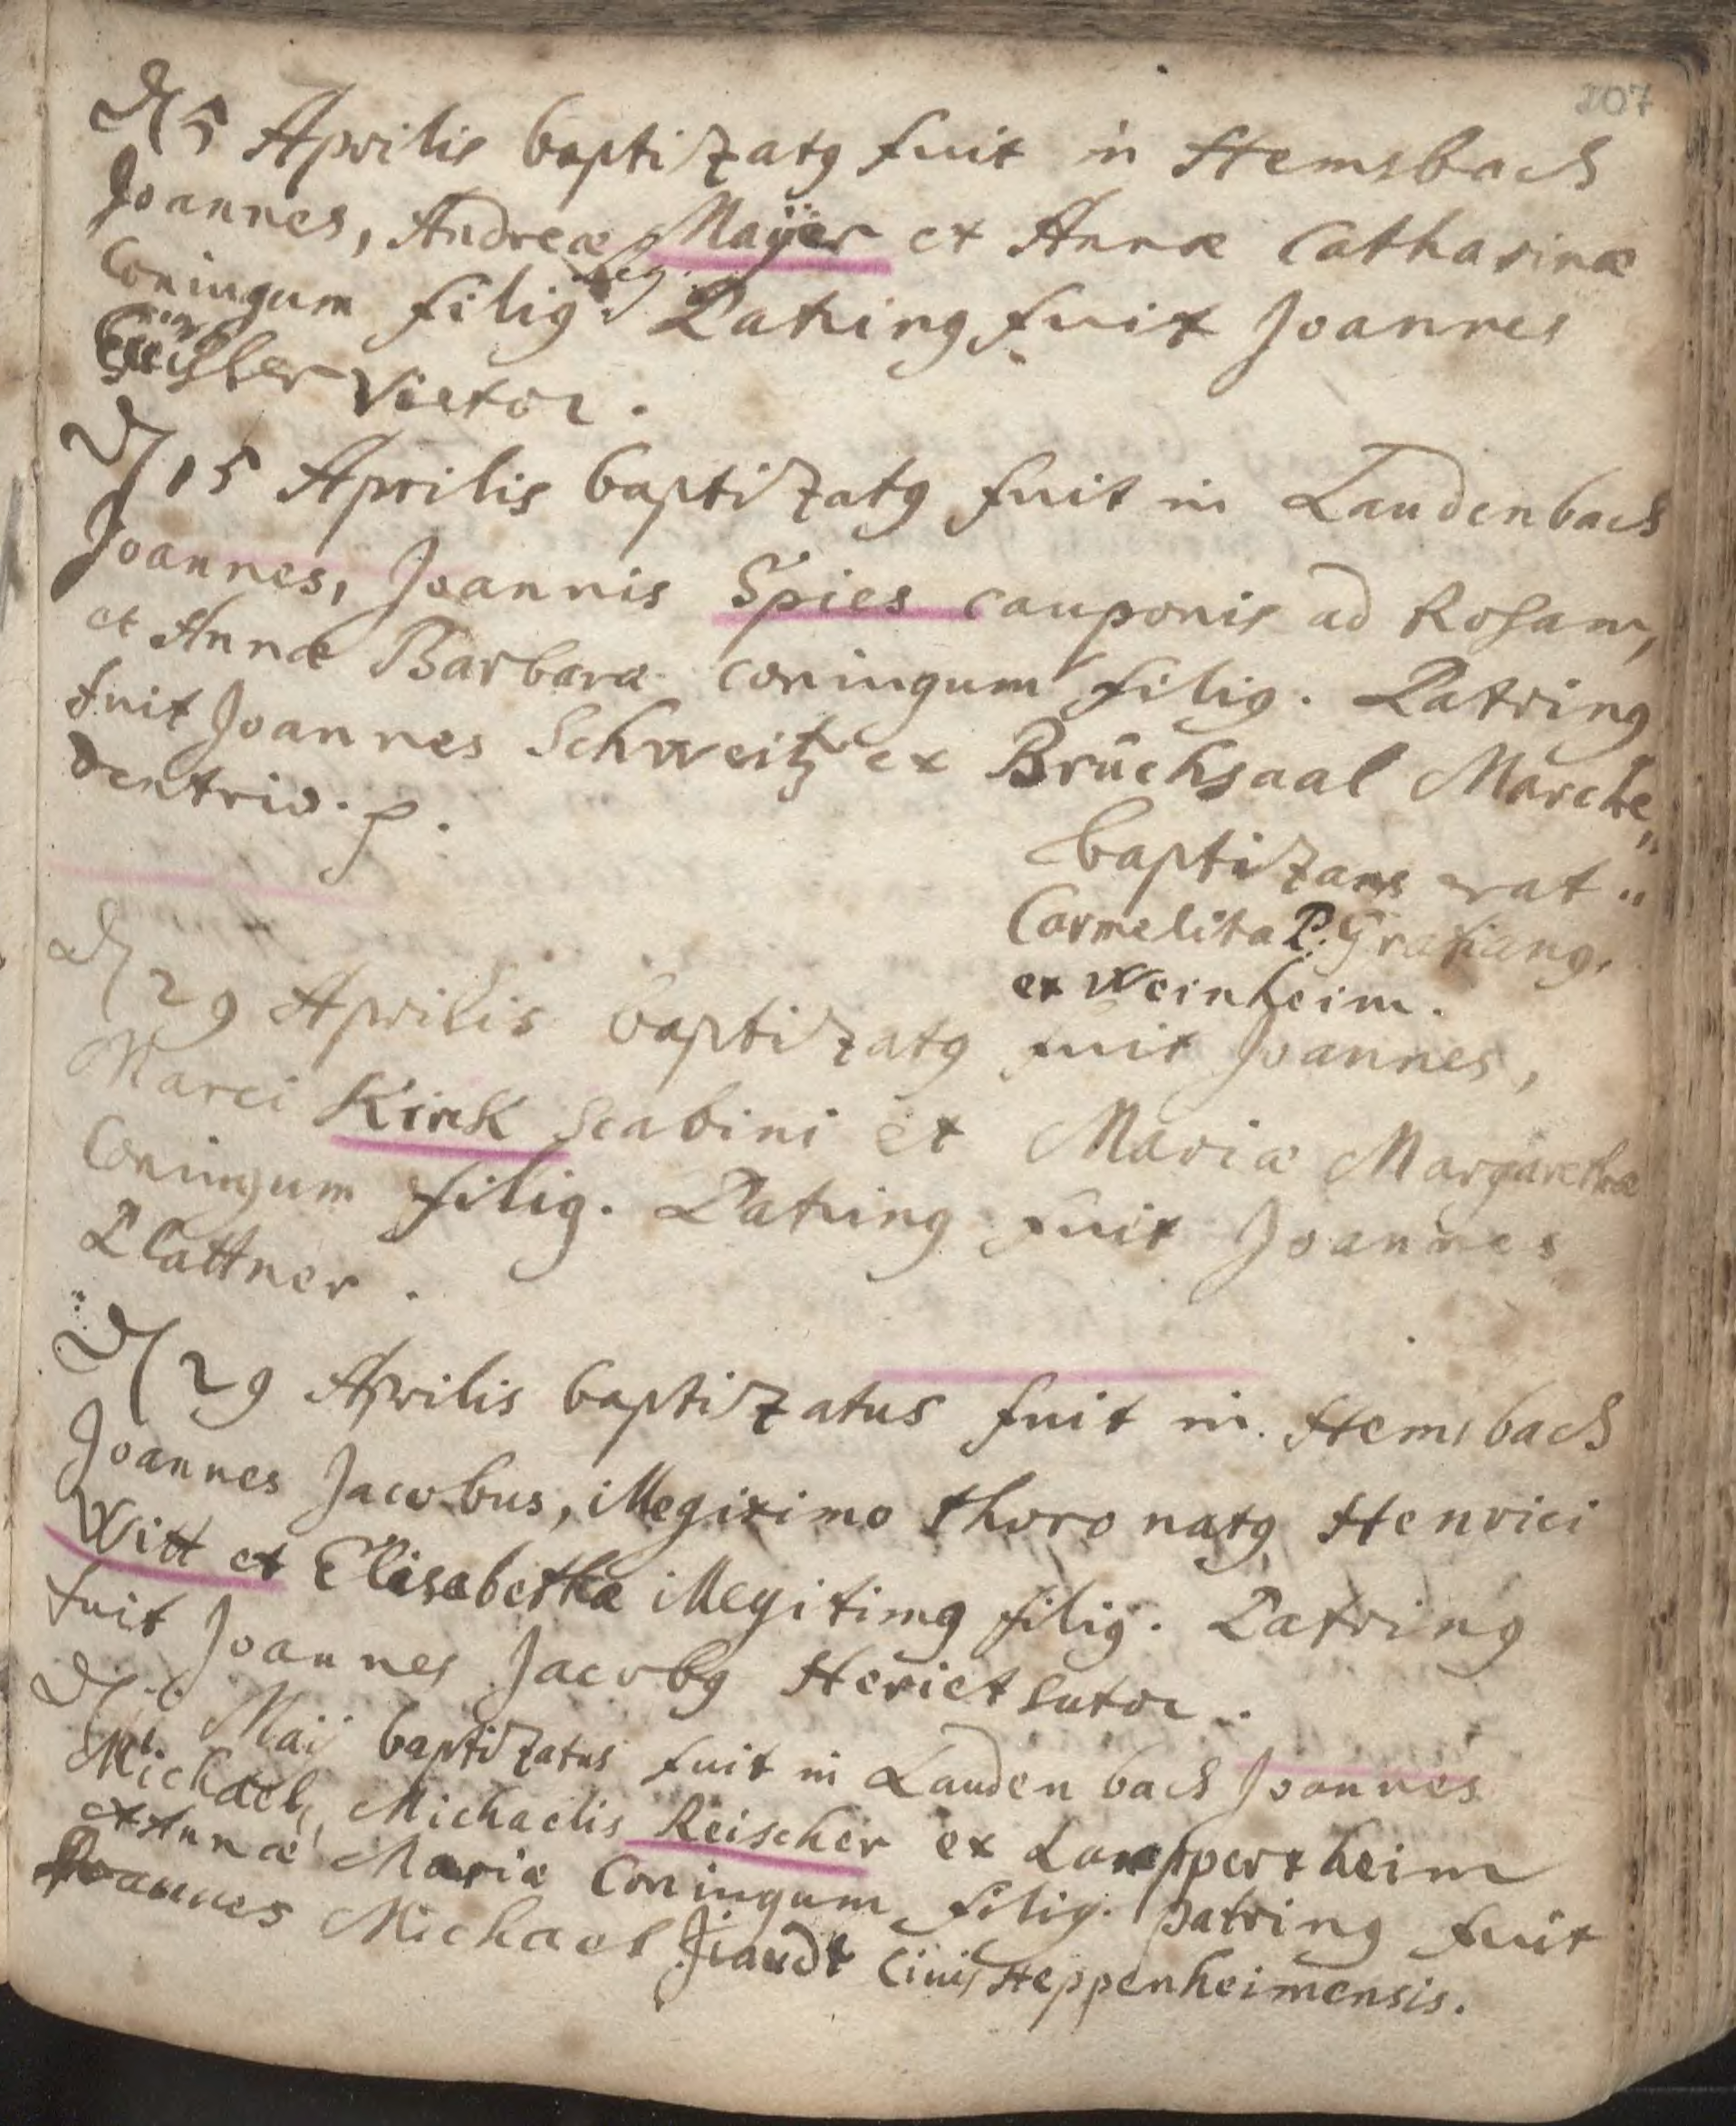 207
D 5 Aprilis baptizatg fuit in Hemsbach
Joannes, Andreæ Maÿer et Annæ Catharinæ
leg.
Coniugum filig. Patring fuit Joannes
Vietor.
D 15 Aprilis baptizatg fuit in Laudenbach
Joannes, Joannis Spies cauponis ad Rosam,
et Annæ Barbaræ coniugum filig. Patring
fuit Joannes Schweitz ex Brŭchsaal Marcke„
dentrio. p.
baptizans erat „
Carmelita P. Gratiang.
ex Weinheim.
D 29 Aprilis baptizatg fuit Joannes,
Marci Kink scabini et Mariæ Margarethæ
Coniugum filig. Patring fuit Joannes
Plattner.
D 29 Aprilis baptizatus fuit in Hemsbach
Joannes Jacobus, illegitimo thoro natg Henrici
Witt et Elisabetha illegitimg filig. Patring
fuit Joannes Jacobg Heriet sutor.
D 6 Maÿ baptizatus fuit in Laudenbach Joannes
Michael, Michaelis Reischer ex Lampertheim
et Annæ Mariæ Coniugum filig. patring fuit
Joannes Michael civis Heppenheimensis.